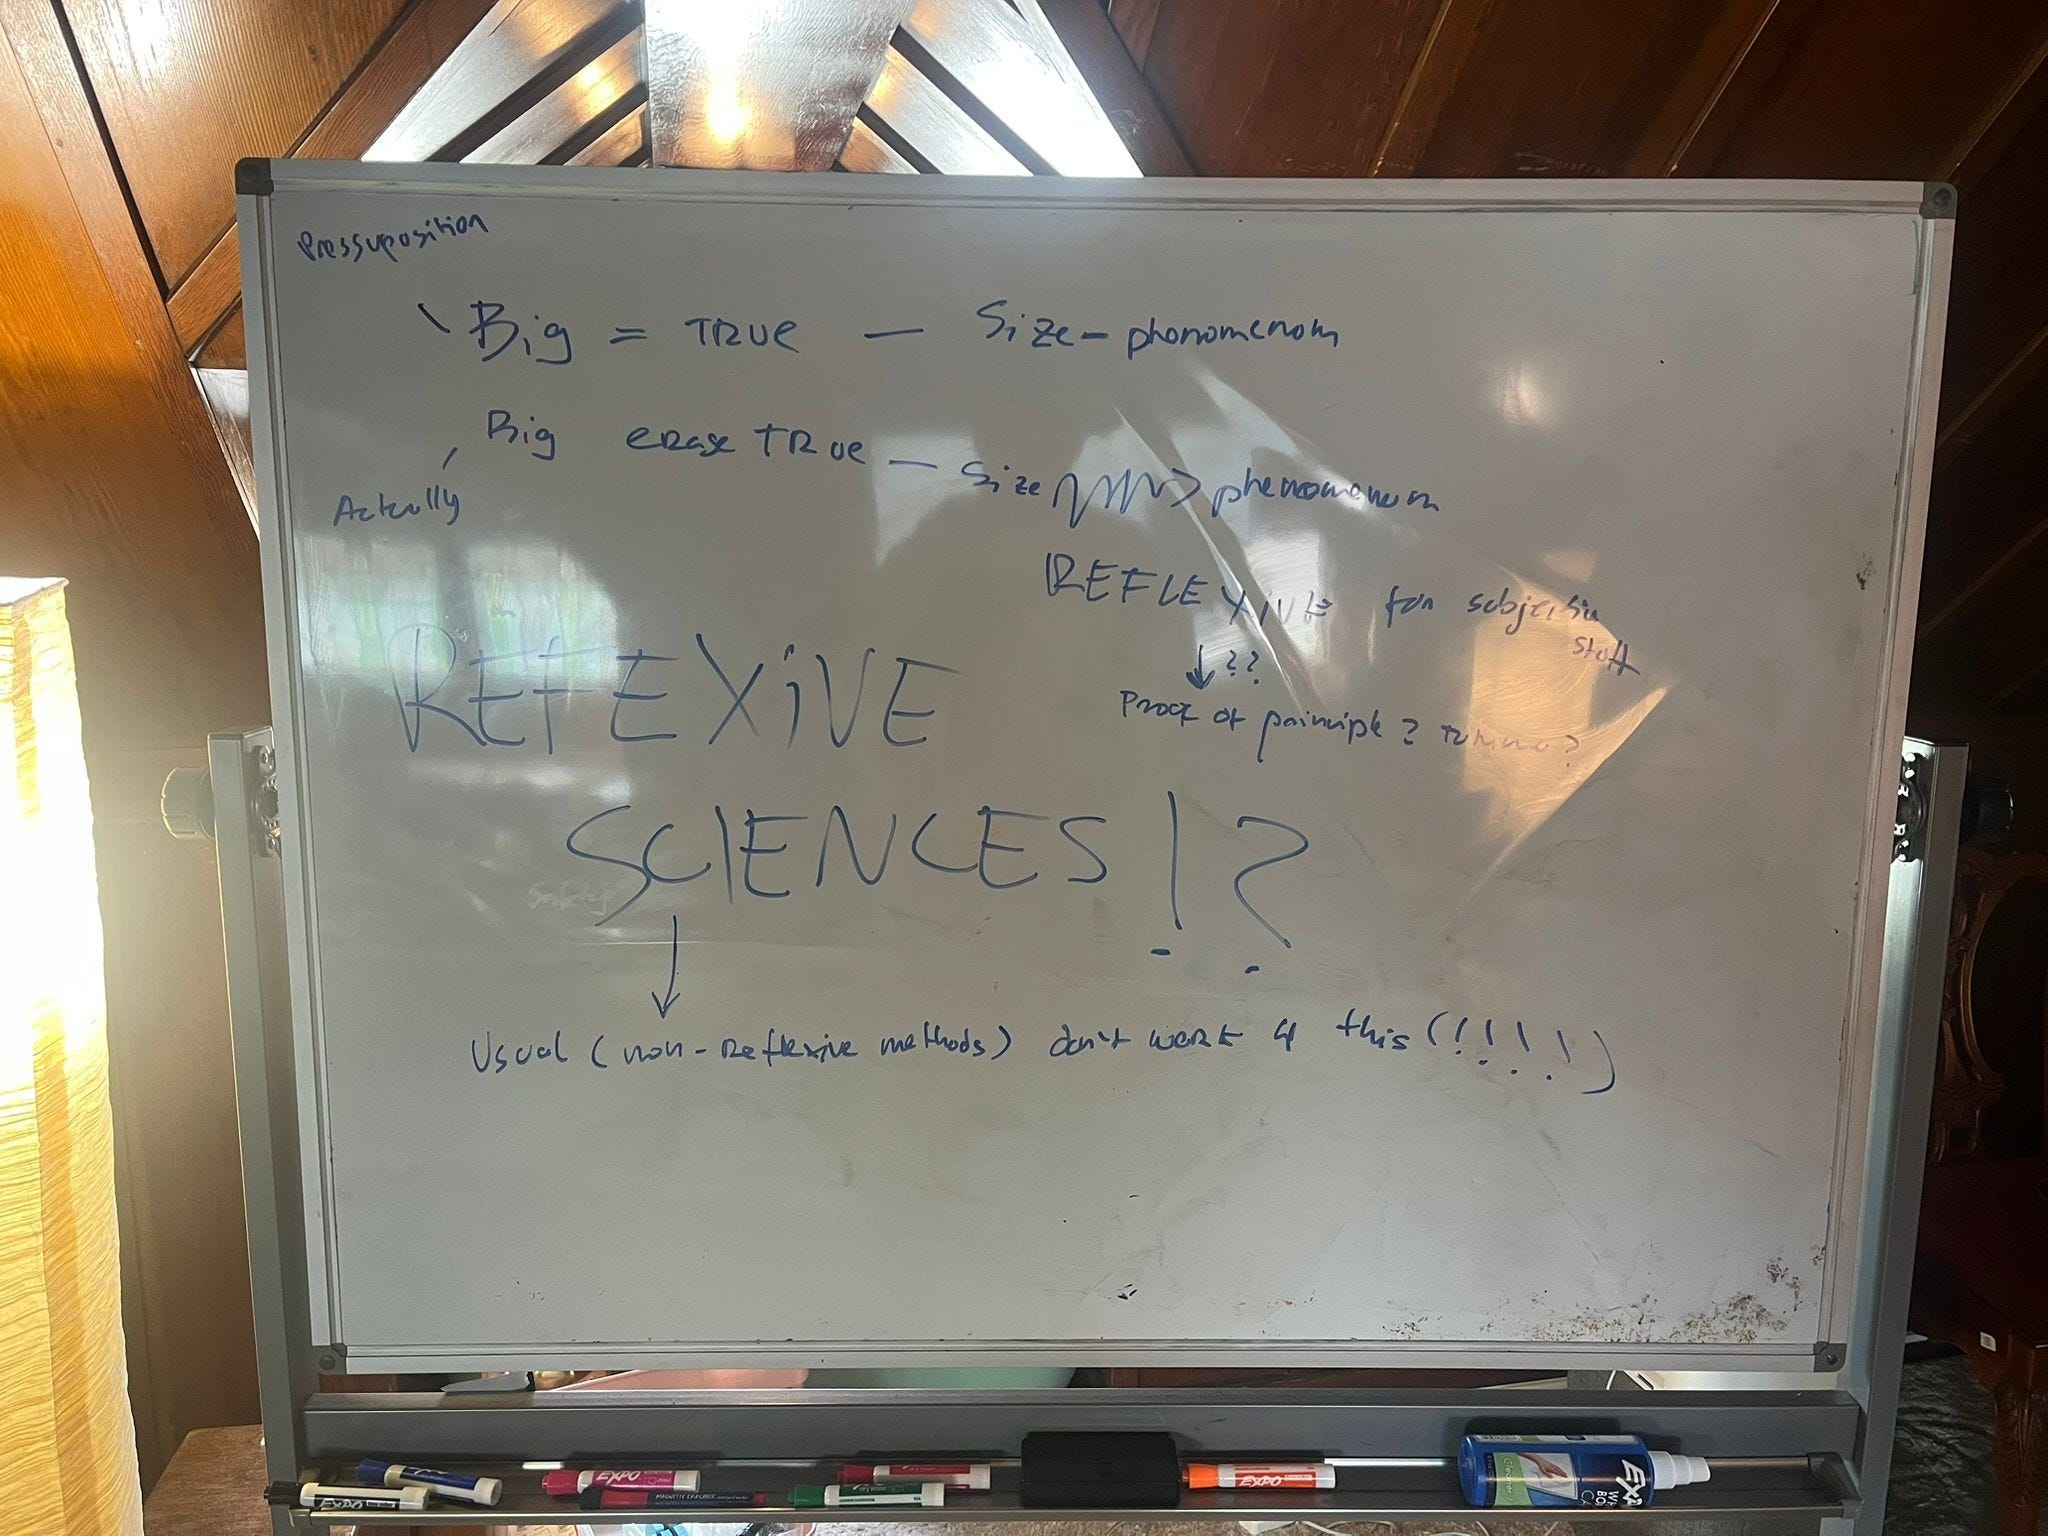 Pressuposition
Big = TRUE — Size - phonomenom
Big erase TRUE — Size phenomenum
Actually
REFLEXIVE for subjective
stuff
↓ ??
Proof of principle ?
REFEXIVE
SCIENCES !?
↓
Usual (non-Reflexive methods) don't work if this (!!!!)
EXPO
EXPO
EXPO
EXPO